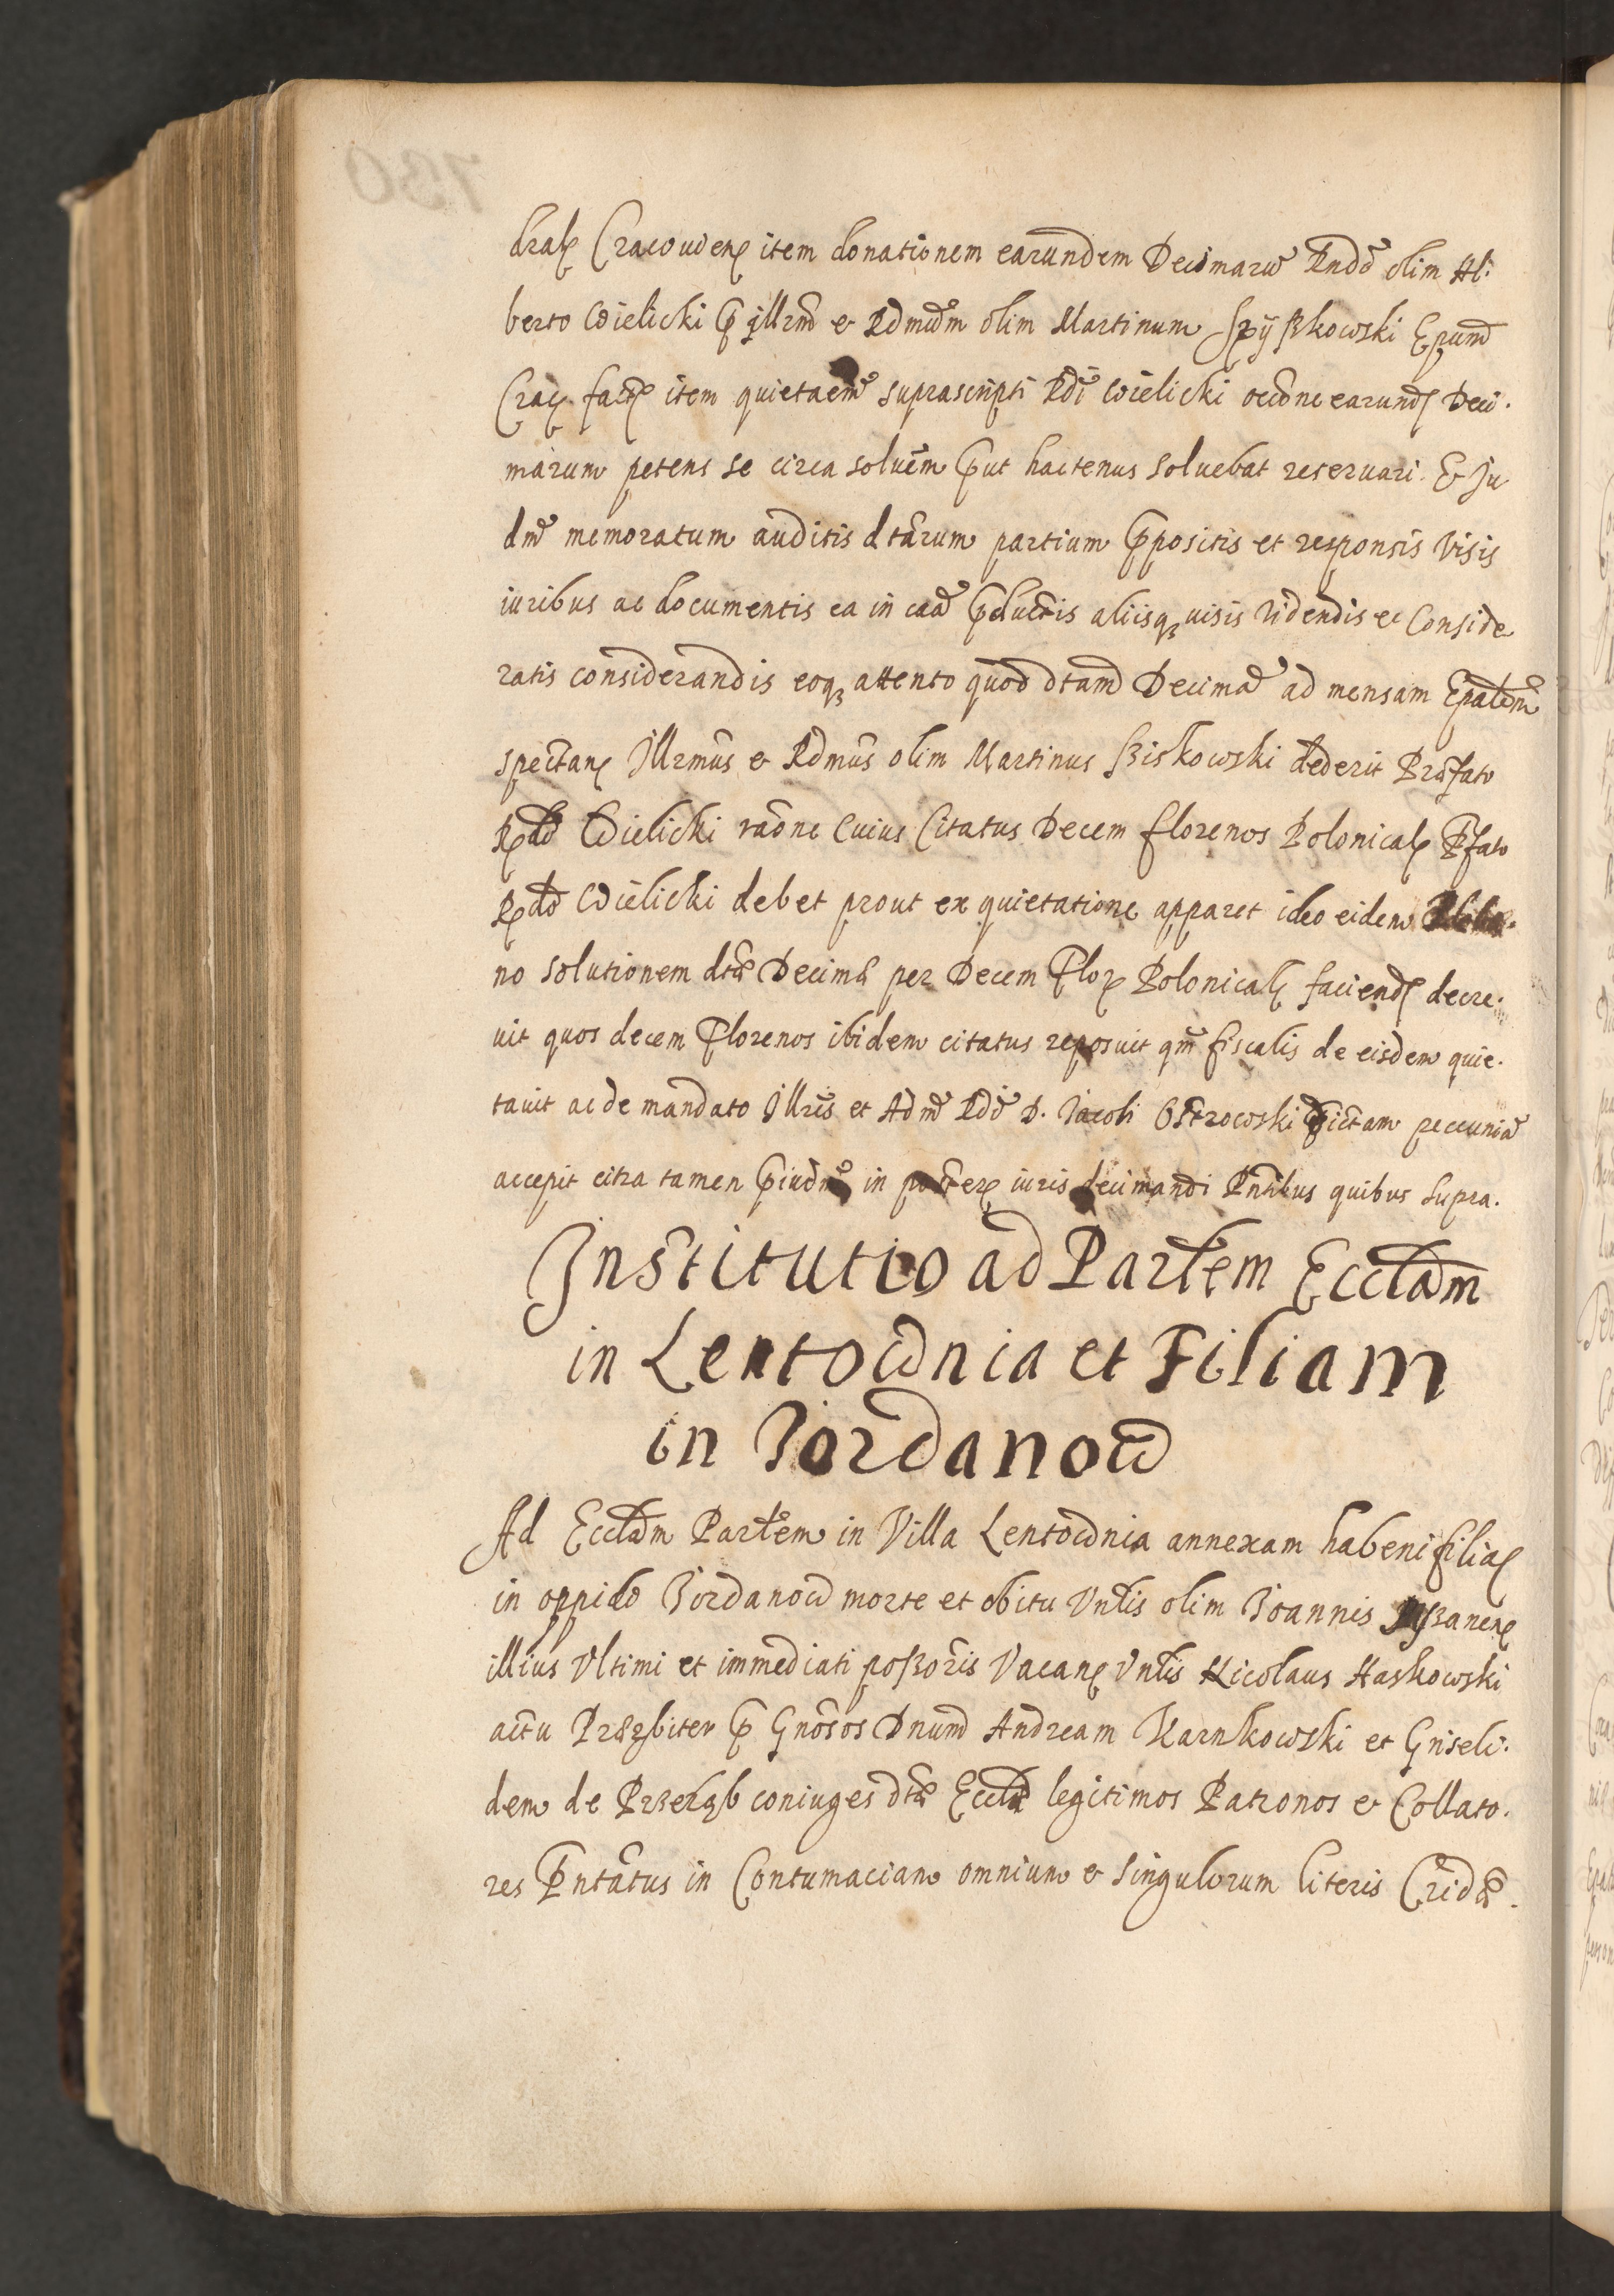 dral Cracouien item donationem earundem Decimarũ Rndõ olim Al:
berto Wielicki p illrm̃ & Rdmũm olim Martinum Szyßkowski Epum̃
Crac. fact item quietaem̃ suprascripti Rdi Wielicki occõne earund Deci.
marum petens se circa soluẽm put hactenus soluebat reseruari. Et Ju
dm̃ memoratum auditis dtarum partium ppositis et responsis Visis
iuribus ac documentis ea in caã pductis aliisq uisis Videndis et Conside
ratis considerandis eoq attento quod dtam̃ Decimã ad mensam Epalem̃
spectan Jllrmũs & Rdmũs olim Martinus ßiskowski dederit Præfato
Rdõ Wielicki raõne Cuius Citatus Decem florenos Polonical Pfato
Rdõ Wielicki debet prout ex quietatione apparet ideo eidem
no solutionem dtæ Decimæ per Decem Flor Polonical faciend decre.
uit quos decem Florenos ibidem citatus reposuit qm̃ fiscalis de eisdem quie.
tauit ac de mandato Jllris et Adm̃ Rdi D. Jacobi Ostrowski dictam peccuniã
accepit citra tamen piudm̃ in poster iuris decimandi Pntibus quibus supra.
Institutio ad Partem Ecclam
in Lentownia et Filiam
in Jordanow
Ad Ecclam Partem in Villa Lentownia annexam habeni filial
in oppido Jordanow morte et obitu Vnlis olim Joannis
illius Vltimi et immediati poßoris Vacan Vnlis Nicolaus Haskowski
actu Præsbiter p Gnosos Dnum Andream Karnkowski et Griseli.
dem de Przerąb coniuges dtæ Ecclæ legitimos Patronos & Collato.
res Pntatus in Contumaciam omnium & singulorum literis Cridæ.